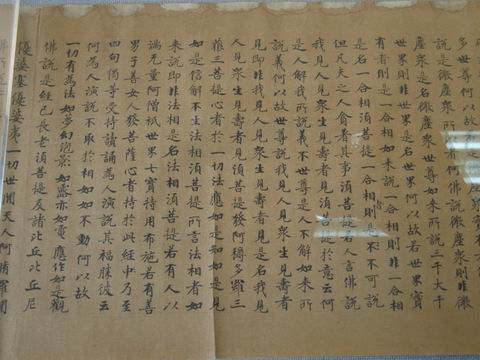 多世尊何以故
說是微塵眾所以者何佛說微塵眾則非微
塵眾是名微塵眾世尊如來所說三千大千
世界則非世界是名世界何以故若世界實
有者則是一合相如來說一合相則非一合相
是名一合相須菩提一合相者則是不可說
但凡夫之人貪著其事須菩提若人言佛說
我見人見眾生見壽者見須菩提於意云何
是人解我所說義不世尊是人不解如來所
說義何以故世尊說我見人見眾生見壽者
見即非我見人見眾生見壽者見是名我見
人見眾生見壽者見須菩提發阿耨多羅三
藐三菩提心者於一切法應如是知如是見
如是信解不生法相須菩提所言法相者如
來說即非法相是名法相須菩提若有人以
滿无量阿僧祇世界七寶持用布施若有善
男子善女人發菩薩心者持於此經中乃至
四句偈等受持讀誦為人演說其福勝彼云
何為人演說不取於相如如不動何以故
一切有為法 如夢幻泡影 如露亦如電 應作如是觀
佛說是經已長老須菩提及諸比丘比丘尼
優婆塞優婆夷一切世間天人阿脩羅聞
佛所說